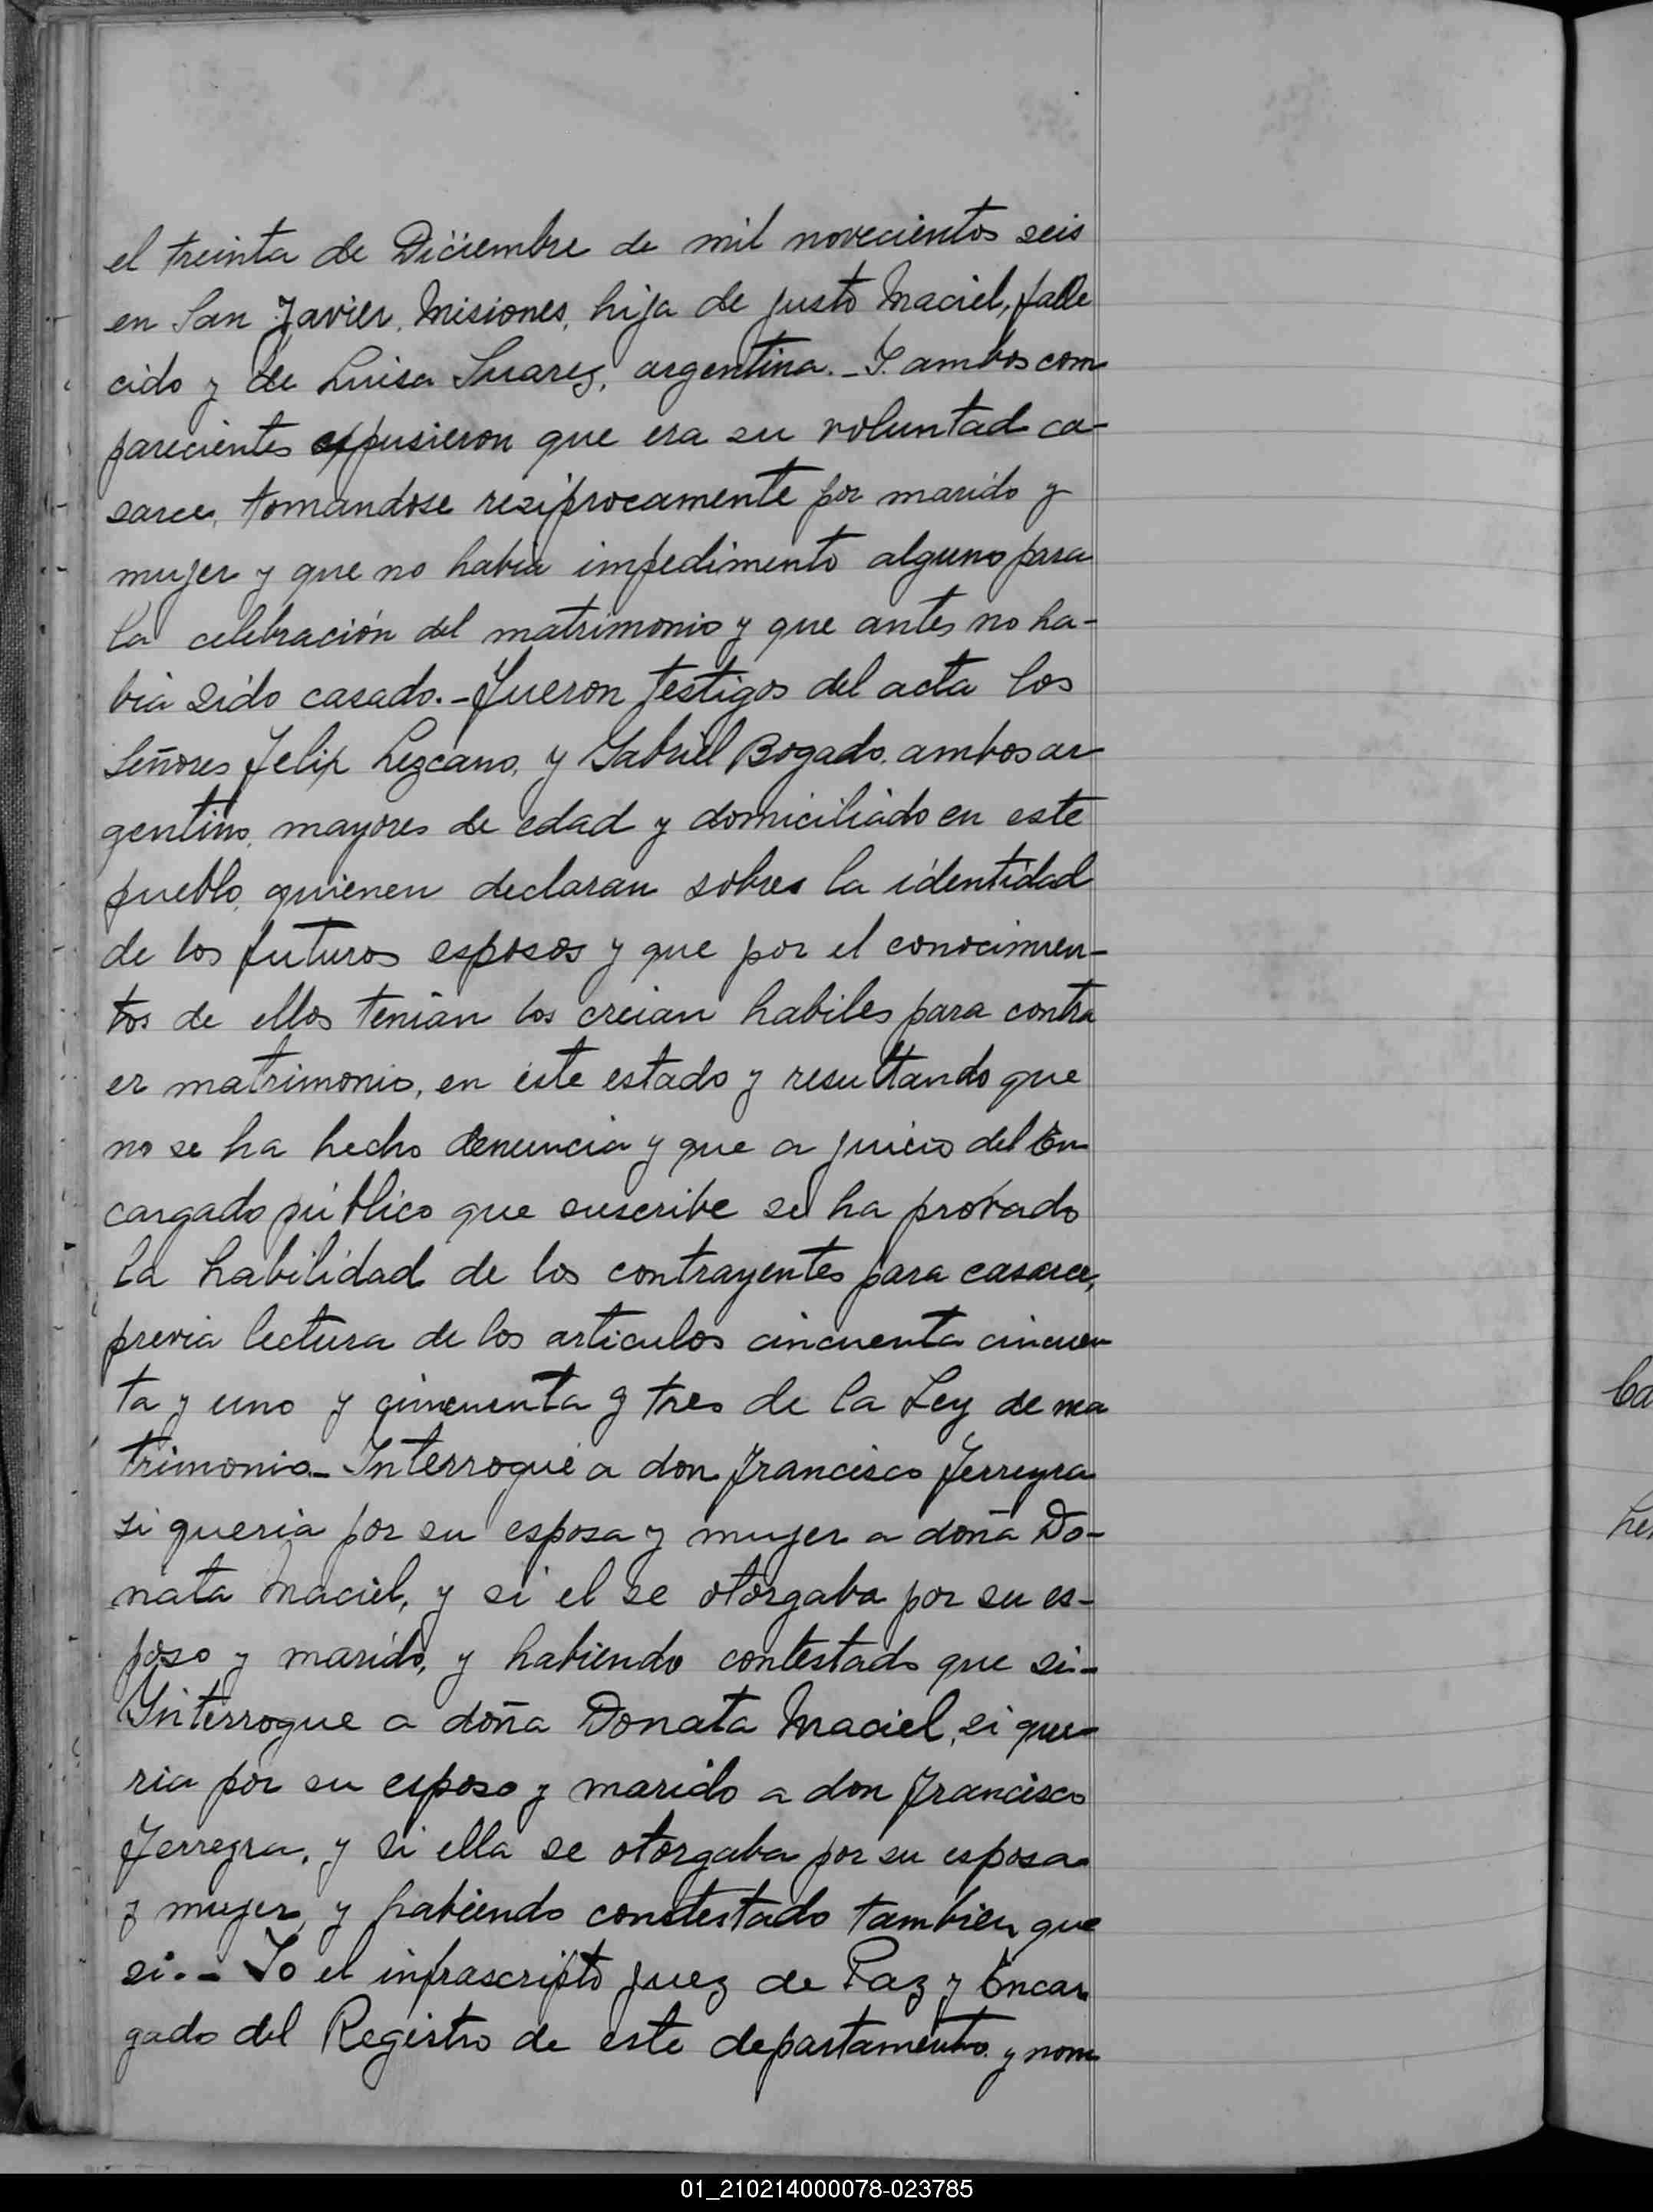 el treinta de Diciembre de mil novecientos seis
en San Javier, Misiones, hija de Justo Maciel, falle
cido y de Luisa Suarez, argentina.- Y ambos com
parecientes expusieron que era su voluntad ca-
sarce, tomandose reziprocamente por marido y
mujer y que no habia impedimento alguno para
la celebración del matrimonio y que antes no ha-
bia sido casado.- Fueron testigos del acta los
señores Felix Lezcano, y Gabriel Bogado, ambos ar
gentino, mayores de edad y domiciliado en este
pueblo, quienen declaran sobres la identidad
de los futuros esposos y que por el conocimien-
tos de ellos tenian los creian habiles para contra
er matrimonio, en este estado y resultando que
no se ha hecho denuncia y que a juicio del En
cargado público que suscribe se ha probado
la habilidad de los contrayentes para casarce,
previa lectura de los articulos cincuenta cincuen
ta y uno y cincuenta y tres de la Ley de ma
trimonio.- Interrogué a don Francisco Ferreyra
si queria por su esposa y mujer a doña Do-
nata Maciel, y si el se otorgaba por su es-
poso y marido, y habiendo contestado que si-
Interrogue a doña Donata Maciel, si que-
ria por su esposo y marido a don Francisco
Ferreyra, y si ella se otorgaba por su esposa
y mujer, y habiendo constestado tambien que
si.- Yo el infrascripto Juez de Paz y Encar
gado del Registro de este departamento. y nom
Ca
he
01_210214000078-023785